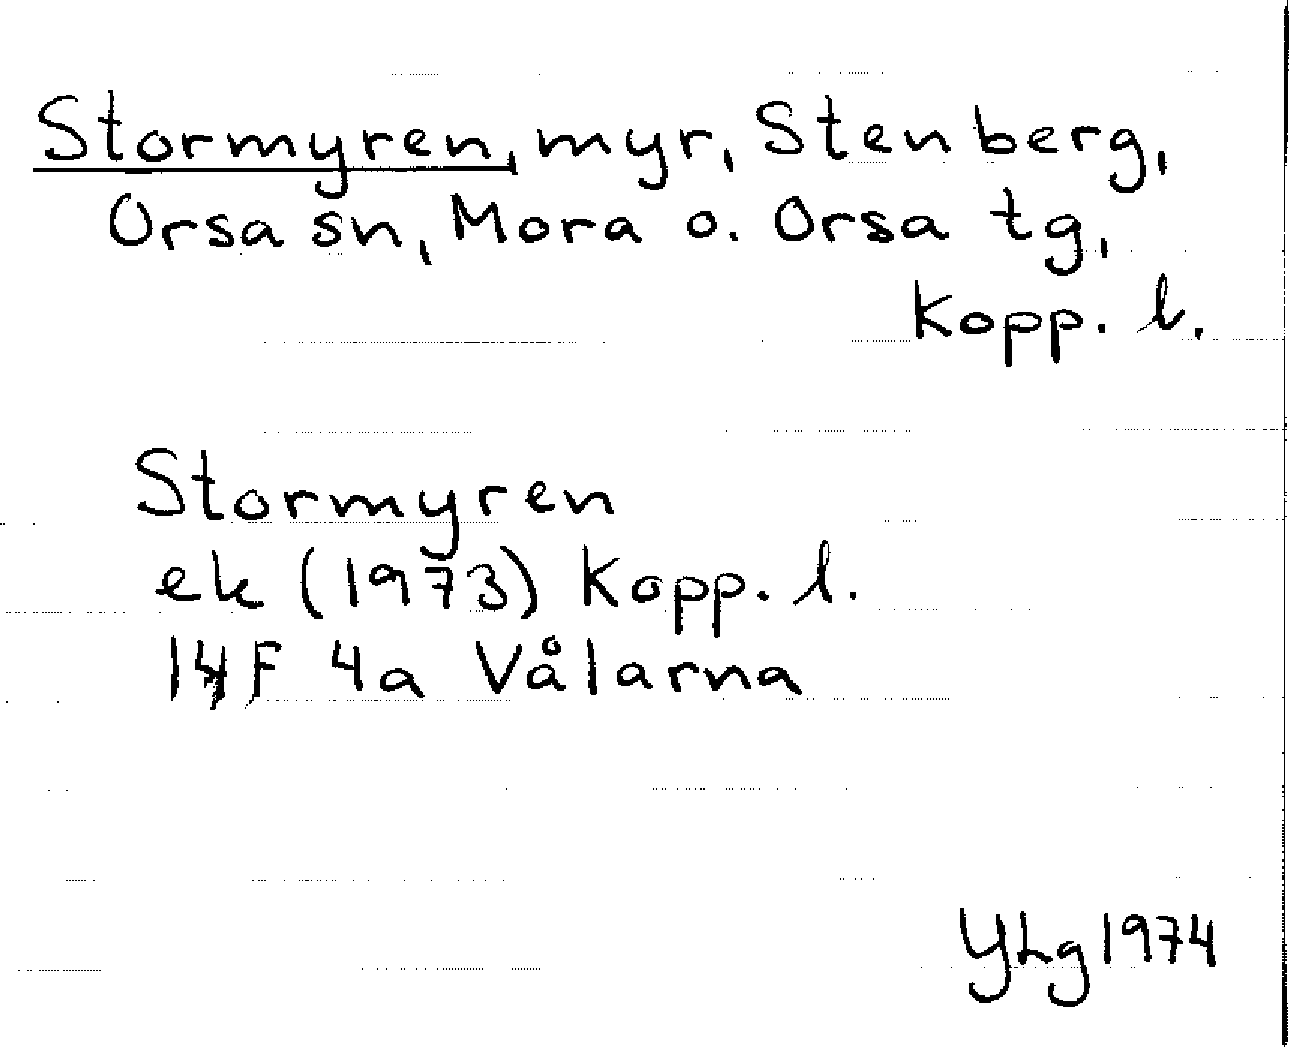 Stormyren, myr, Stenberg,
Orsa sn, Mora o. Orsa tg,
Kopp. l.
Stormyren
ek (1973) Kopp. l.
14F 4a Vålarna
YLg 1974